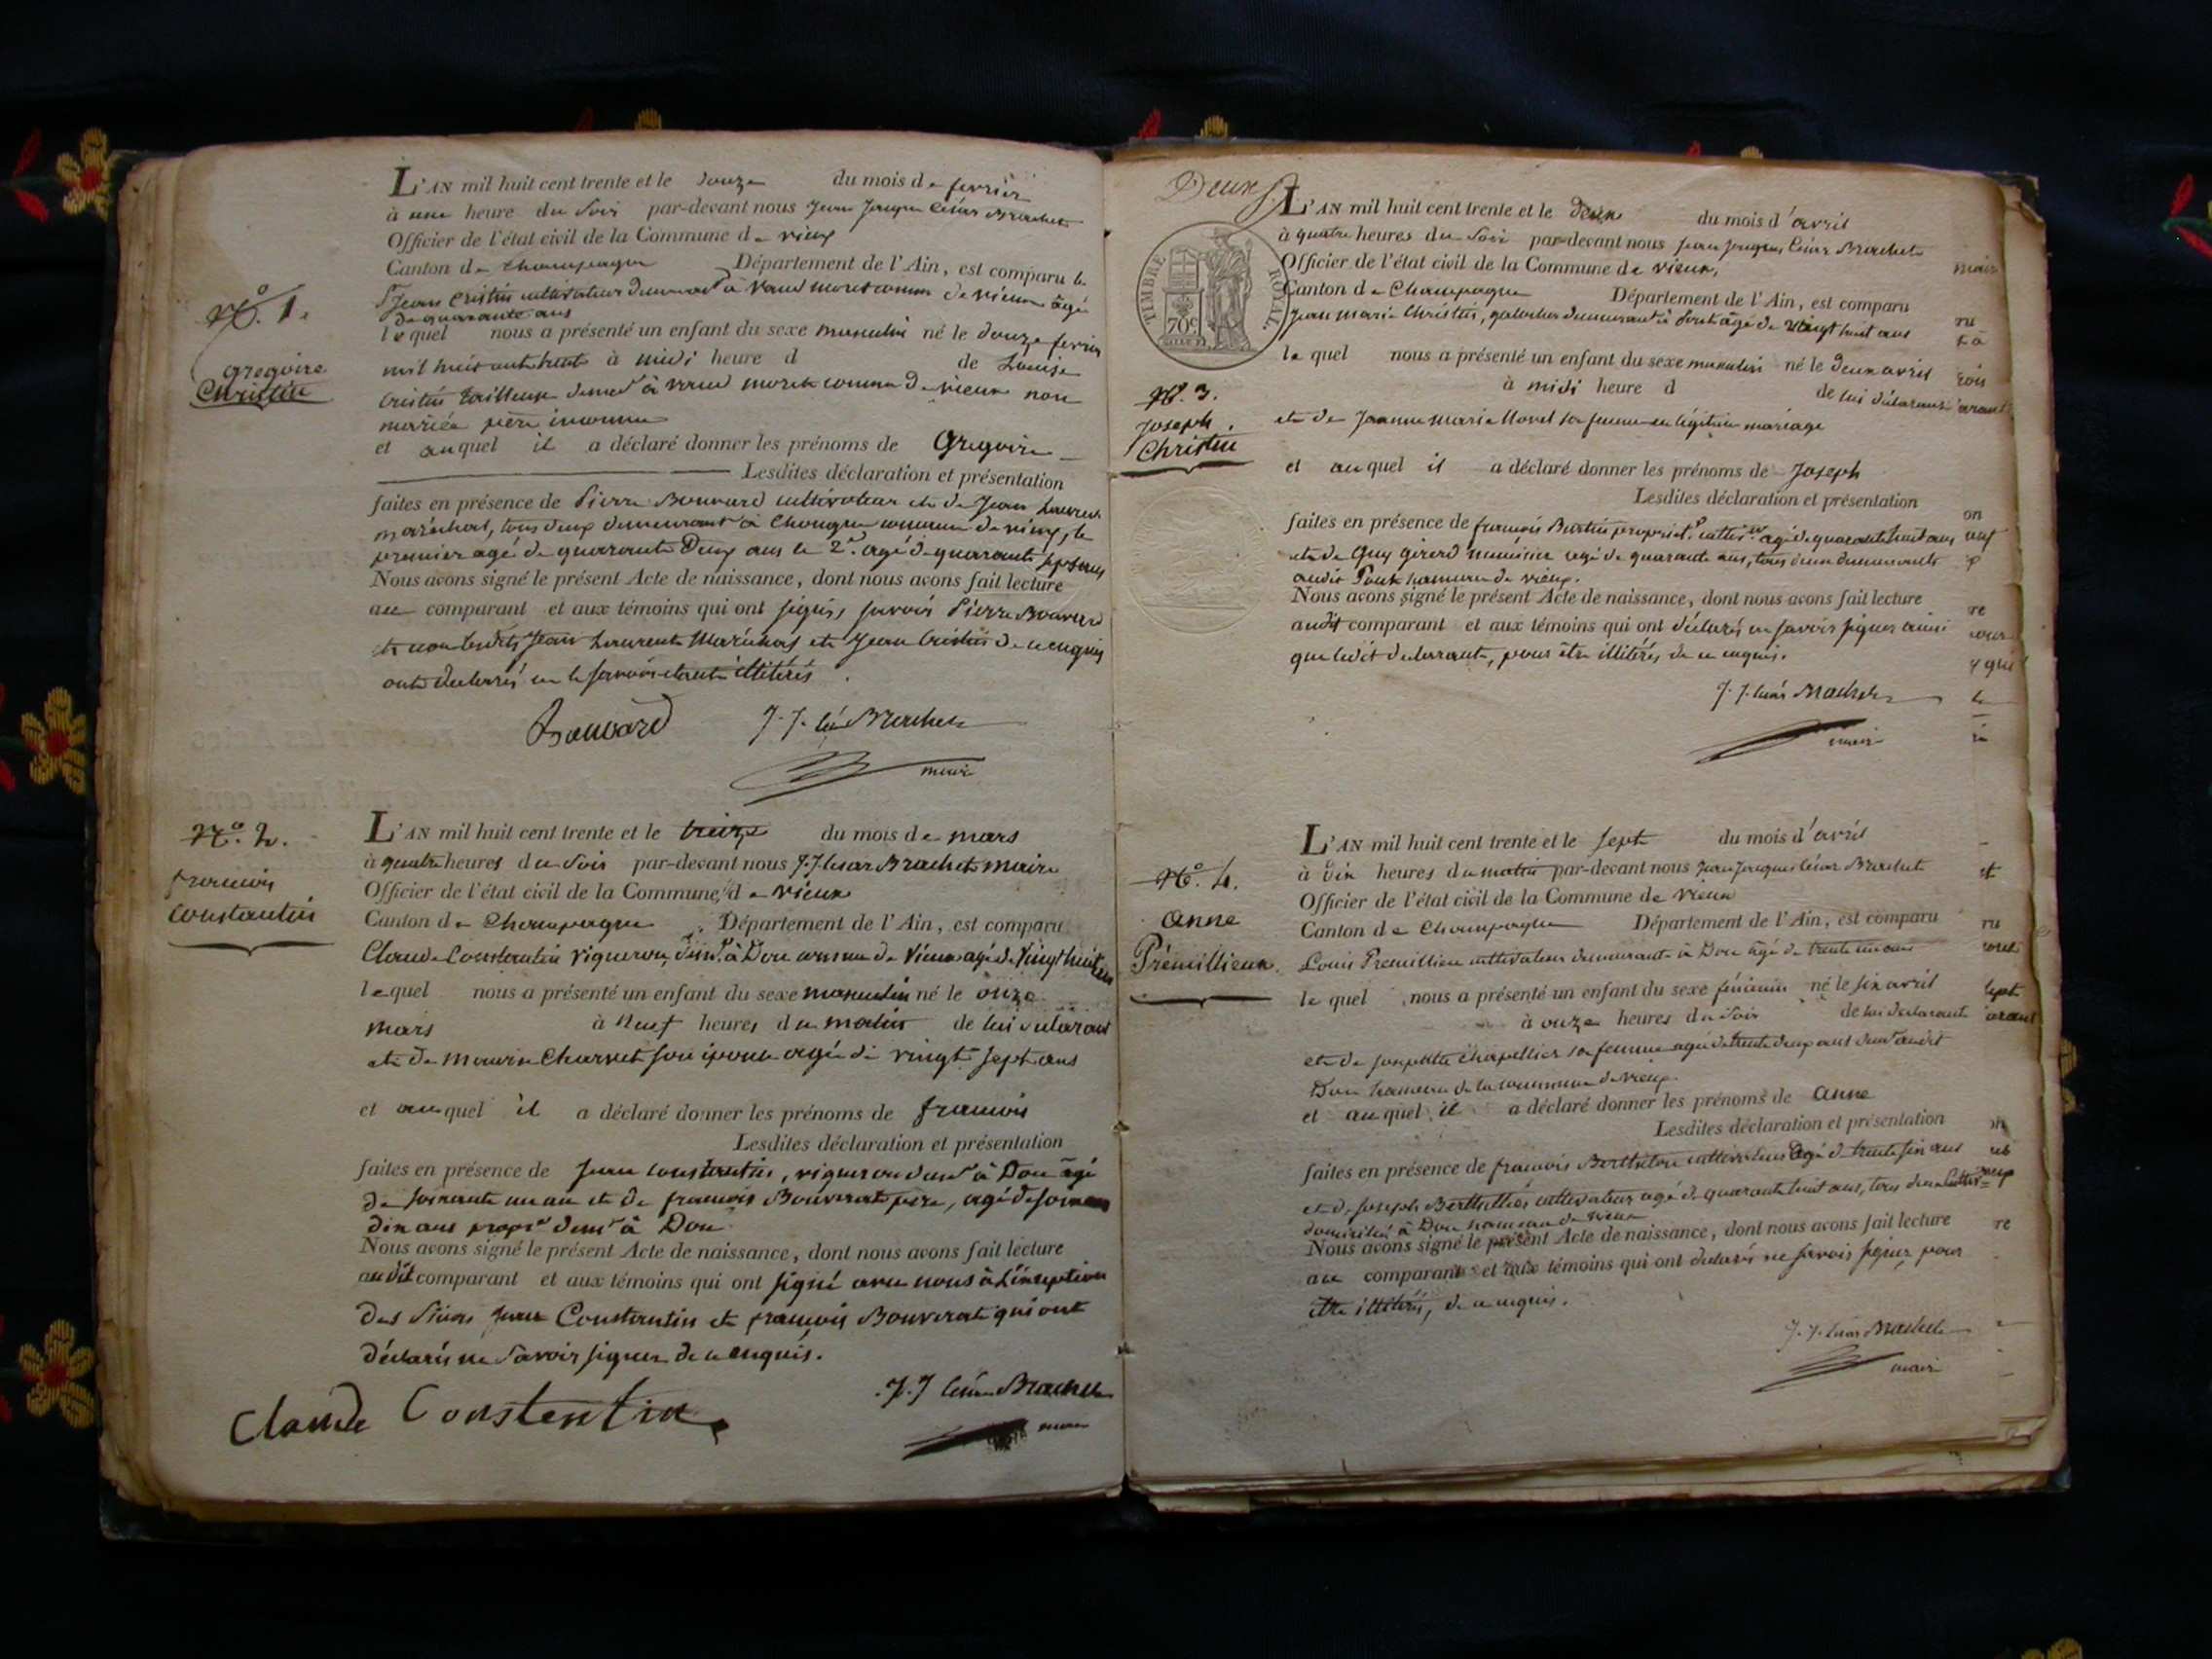 L'AN mil huit cent trente et le douze du mois de fevrier
à une heure du soir par-devant nous Jean Jacques César Brachet
Officier de l'état civil de la Commune de vieux
Canton de Champagne Département de l'Ain, est comparu le
Sr Jean Cristin cultivateur demeurant à vaud moret comm. de vieux âgé
de quarante ans
lequel nous a présenté un enfant du sexe masculin né le douze fevrier
mil huit cent trente à midi heure d de Louise
Cristin tailleuse demt à vaud moret commune de vieux non
mariée père inconnu
et auquel il a déclaré donner les prénoms de Gregoire
Lesdites déclaration et présentation
faites en présence de Pierre Bouvard cultivateur et de Jean Laurent
maréchal, tous deux demeurant à Chongne commune de vieux, le
premier agé de quarante Deux ans le 2e agé de quarante sept ans
Nous avons signé le présent Acte de naissance, dont nous avons fait lecture
au comparant et aux témoins qui ont signé, savoir Pierre Bouvard
et non lesdits Jean Laurent Maréchal et Jean Cristin de ce enquis
ont declaré ne le savoir etant illitérés.
Bouvard J. J. César Brachet
maire
No. 1.
Gregoire
Christin
L'AN mil huit cent trente et le treize du mois de mars
à quatre heures du soir par-devant nous J. J. César Brachet maire
Officier de l'état civil de la Commune de vieux
Canton de Champagne Département de l'Ain, est comparu
Claude Constantin vigneron, demt à Don commune de Vieux agé de vingt huit ans
lequel nous a présenté un enfant du sexe masculin né le onze
mars à neuf heures du matin de lui déclarant
et de Charvet son épouse agée de vingt sept ans
et auquel il a déclaré donner les prénoms de françois
Lesdites déclaration et présentation
faites en présence de Jean Constantin, vigneron demt à Don âgé
de soixante un an et de françois Bouverat père, agé de soixante
dix ans propre demt à Don
Nous avons signé le présent Acte de naissance, dont nous avons fait lecture
audit comparant et aux témoins qui ont signé avec nous à l'éxception
des Sieurs Jean Constantin et françois Bouverat qui ont
déclaré ne savoir signer de ce enquis.
Claude Constentin J. J. César Brachet
maire
No. 2.
françois
Constantin
Deux
TIMBRE ROYAL
70c
L'AN mil huit cent trente et le deux du mois d'avril
à quatre heures du soir par-devant nous jean jacques César Brachet
Officier de l'état civil de la Commune de vieux,
Canton de Champagne Département de l'Ain, est comparu
Jean marie Christin, demeurant à Pont âgé de vingt huit ans
lequel nous a présenté un enfant du sexe masculin né le deux avril
à midi heure d de lui déclarant
et de Jeanne marie sa femme en légitime mariage
et auquel il a déclaré donner les prénoms de Joseph
Lesdites déclaration et présentation
faites en présence de françois agé de quarante huit ans
et de Guy girerd agé de quarante ans, tous deux demeurants
audit Pont hameau de vieux.
Nous avons signé le présent Acte de naissance, dont nous avons fait lecture
audit comparant et aux témoins qui ont déclaré ne savoir signer ainsi
que ledit déclarant, pour être illitérés de ce enquis.
J. J. César Brachet
maire
No. 3.
Joseph
Christin
L'AN mil huit cent trente et le sept du mois d'avril
à dix heures du matin par-devant nous Jean Jacques César Brachet
Officier de l'état civil de la Commune de vieux
Canton de Champagne Département de l'Ain, est comparu
Louis Premillieu cultivateur demeurant à Don âgé de trente un ans
lequel nous a présenté un enfant du sexe féminin né le six avril
à onze heures du soir de lui déclarant
et de Josephte Chapellier sa femme agée de trente deux ans demt audit
Don hameau de la commune de vieux
et auquel il a déclaré donner les prénoms de Anne
Lesdites déclaration et présentation
faites en présence de françois cultivateur agé de trente six ans
et de Joseph Berthellier cultivateur agé de quarante huit ans, tous deux
domiciliés à Don hameau de vieux
Nous avons signé le présent Acte de naissance, dont nous avons fait lecture
au comparant et aux témoins qui ont déclaré ne savoir signer pour
être illitérés, de ce enquis.
J. J. César Brachet
maire
No. 4.
Anne
Prémillieux.